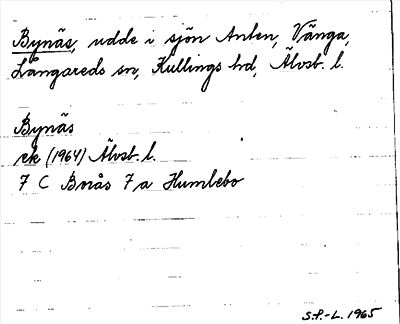 Bynäs, udde i sjön Anten, Vänga,
Långareds sn, Kullings hd, Älvsb. l.
Bynäs
ek (1964) Älvsb. l.
7 C Borås 7a Humlebo
S.P.-L. 1965